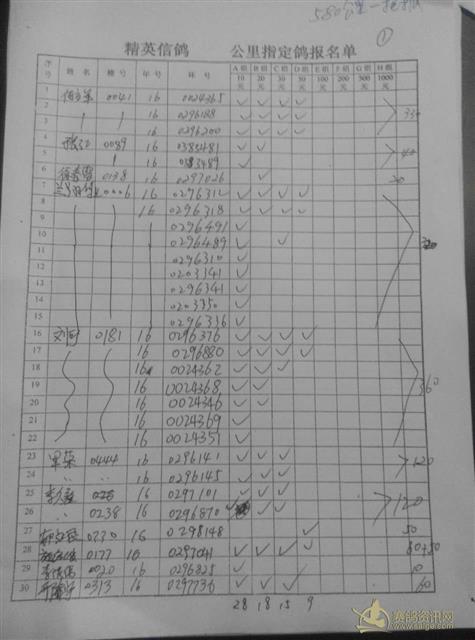 580公里
①
精英信鸽 公里指定鸽报名单
序号 姓名 棚号 年号 环号 A组10元 B组20元 C组30元 D组50元 E组100元 F组200元 G组500元 H组1000元
1 0041 16 0024365 ✓ ✓ ✓ ✓
2 16 0296188 ✓ ✓ ✓ ✓ 330
3 16 0296200 ✓ ✓ ✓ ✓
4 0089 16 0385481 ✓ ✓
5 ✓ 40
6 0138 16 0297026 ✓ 20
7 0006 16 0296312 ✓ ✓ ✓ ✓
8 16 0296318 ✓ ✓ ✓ ✓
9 0296491 ✓
10 0296489 ✓ ✓
11 0296310 ✓
12 0203341 ✓
13 0296341 ✓
14 ✓
15 0296336 ✓
16 0181 16 0296376 ✓ ✓ ✓ ✓
17 16 0296880 ✓ ✓ ✓ ✓
18 16 0024362 ✓ ✓ ✓
19 16 0024368 ✓ ✓ 360
20 16 0024346 ✓ ✓
21 16 0024369 ✓
22 16 0024351 ✓
23 0444 16 0296141 ✓ ✓ ✓
24 16 0296145 ✓ ✓ ✓ 120
25 16 0297101 ✓ ✓ ✓
26 0238 16 0296870 ✓ ✓ 120
27 0230 16 0298148 ✓ 50
28 0177 16 0297041 ✓ ✓ ✓ ✓ 60+50
29 0020 16 0296825 ✓ 10
30 0313 16 0297736 ✓ ✓ ✓ 60
28 18 15 9
赛鸽资讯网
www.saige.com